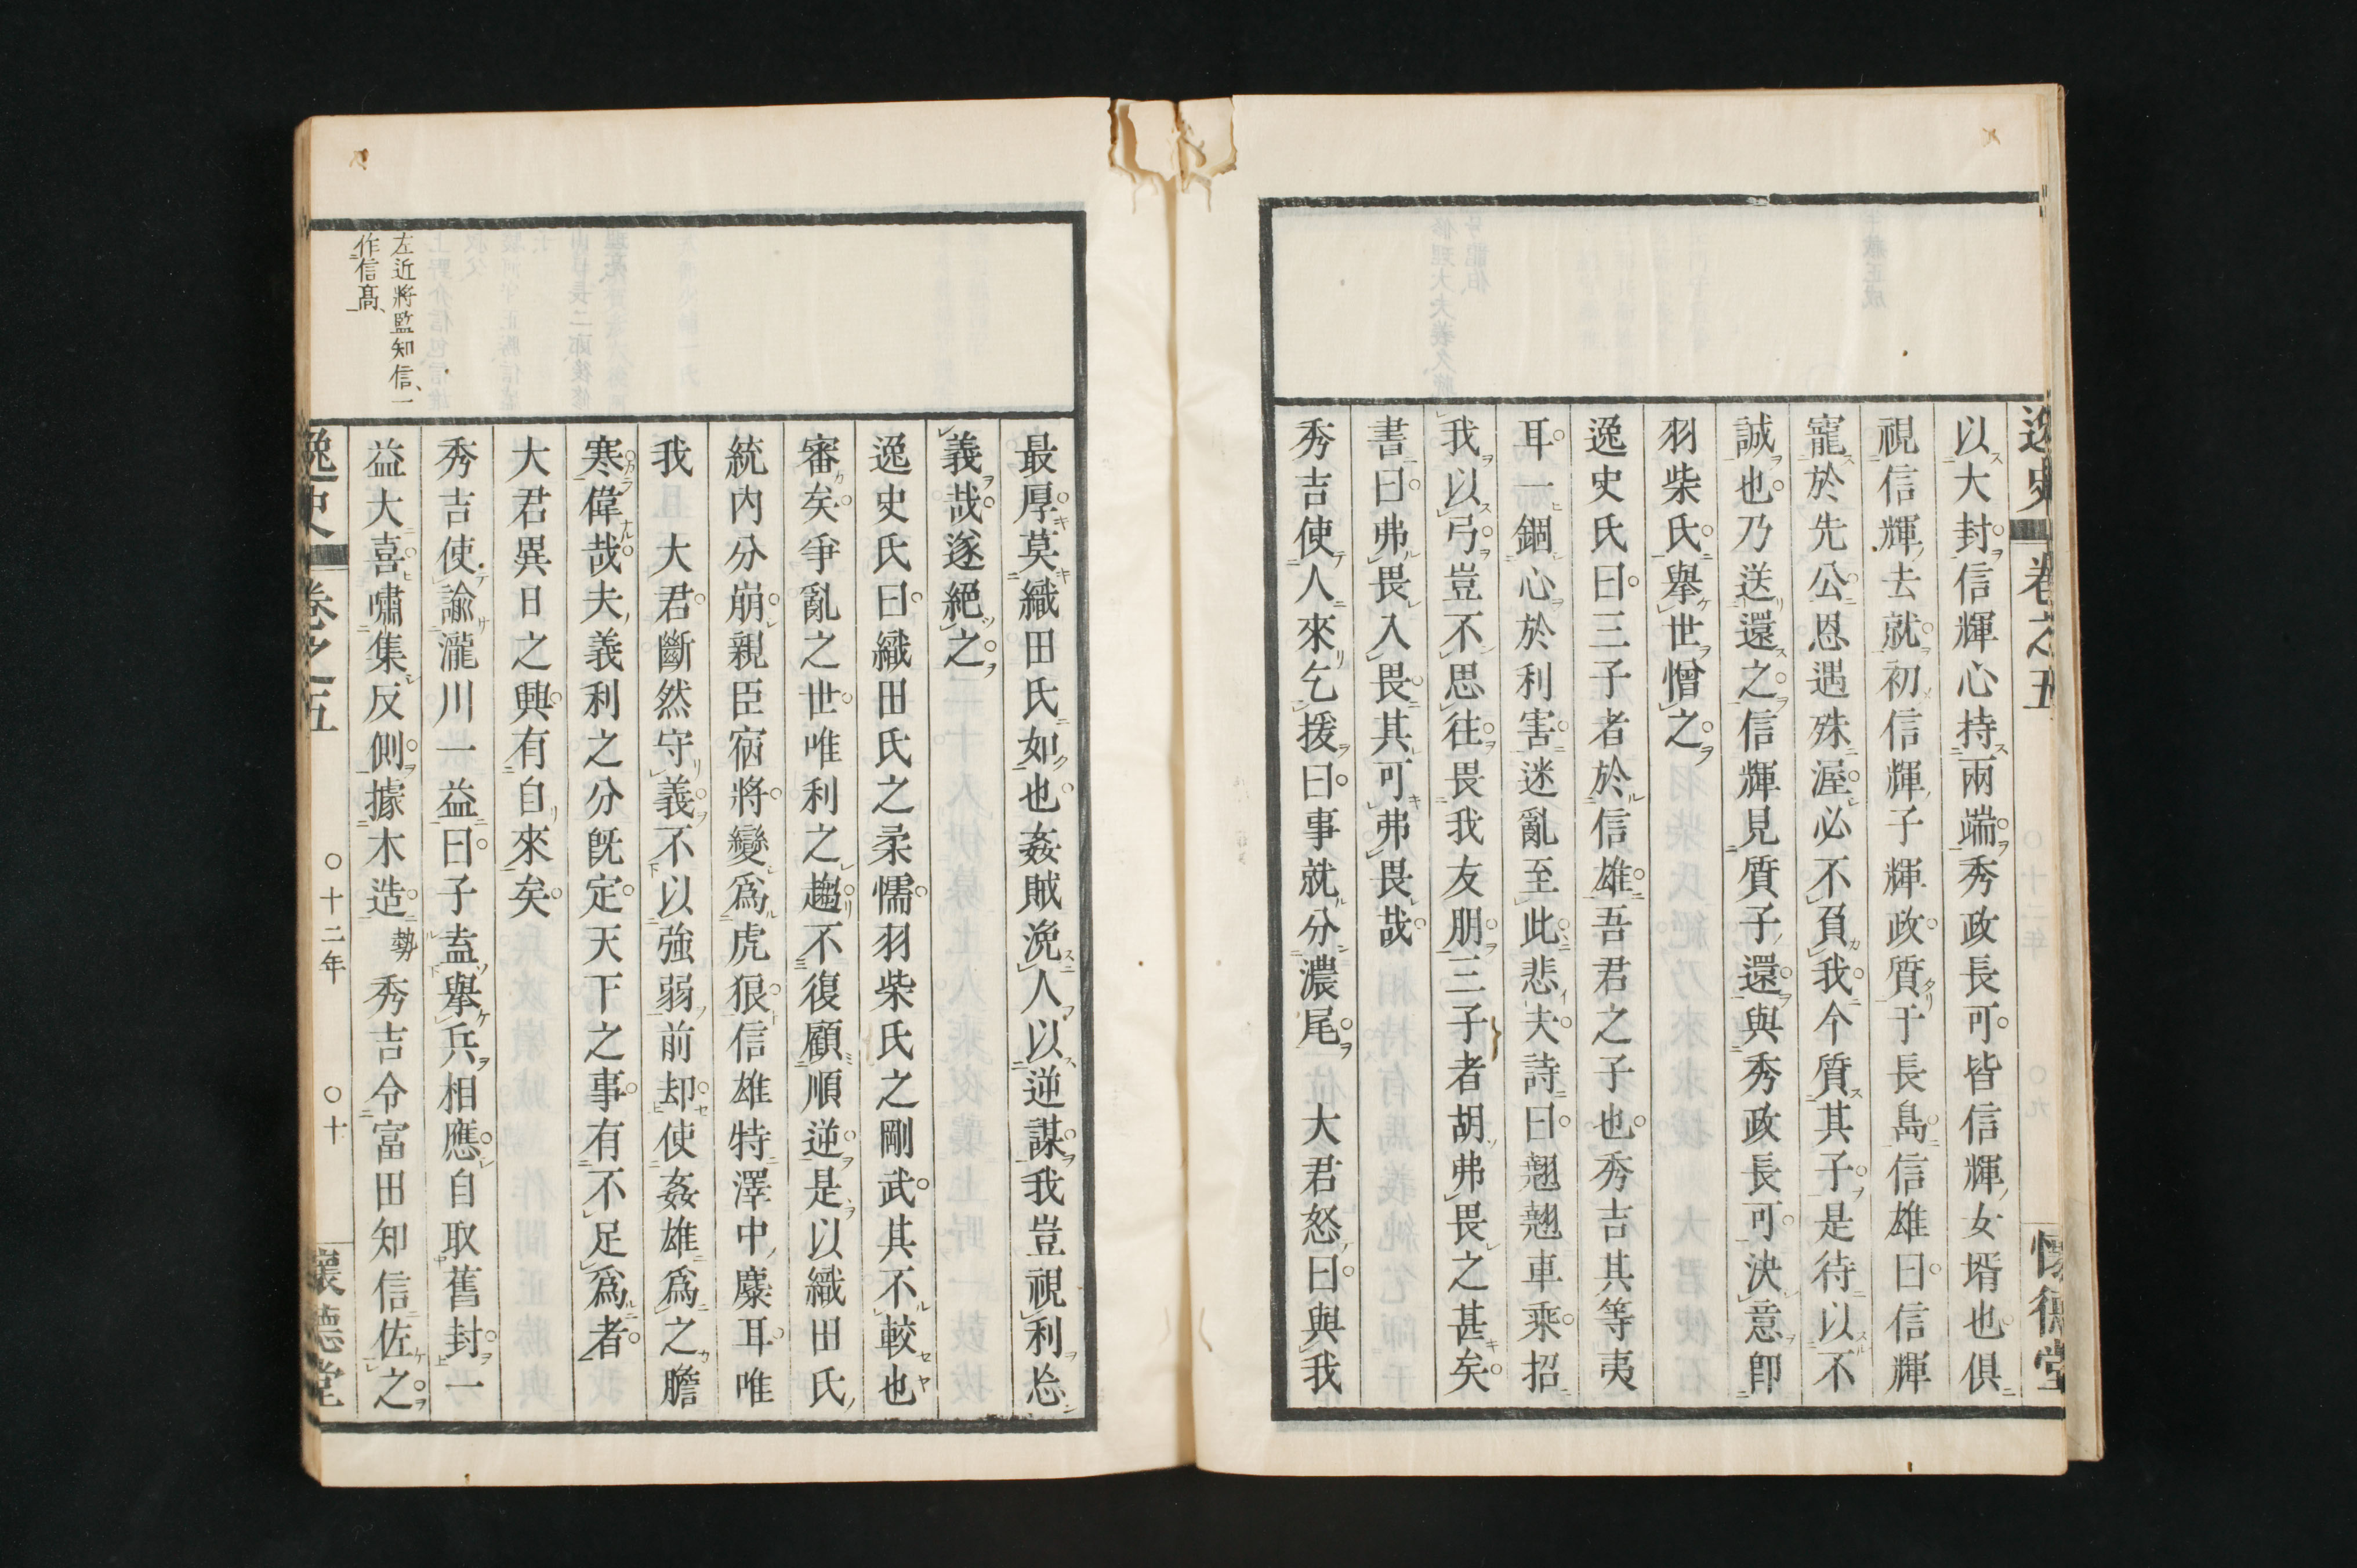 逸史 卷之五 懷德堂
以大封信輝心持兩端秀政長可皆信輝女壻也俱
視信輝去就初信輝子輝政質于長島信雄曰信輝
寵於先公恩遇殊渥必不負我今質其子是待以不
誠也乃送還之信輝見質子還與秀政長可決意卽
羽柴氏擧世憎之
逸史氏曰三子者於信雄吾君之子也秀吉其等夷
耳一錮心於利害迷亂至此悲夫詩曰翹翹車乘招
我以弓豈不思往畏我友朋三子者胡弗畏之甚矣
書曰弗畏入畏其可弗畏哉
秀吉使人來乞援曰事就分濃尾 大君怒曰與我
最厚莫織田氏如也姦賊浼人以逆謀我豈視利忘
義哉遂絕之
逸史氏曰織田氏之柔懦羽柴氏之剛武其不較也
審矣爭亂之世唯利之趨不復顧順逆是以織田氏
統內分崩親臣宿將變爲虎狼信雄特澤中麋耳唯
我 大君斷然守義不以強弱前却使姦雄爲之膽
寒偉哉夫義利之分旣定天下之事有不足爲者
大君異日之興有自來矣
秀吉使諭瀧川一益曰子盍擧兵相應自取舊封一
益大喜嘯集反側據木造勢秀吉令富田知信佐之
左近將監知信、一
作信高、
逸史 卷之五 〇十二年 〇十 懷德堂